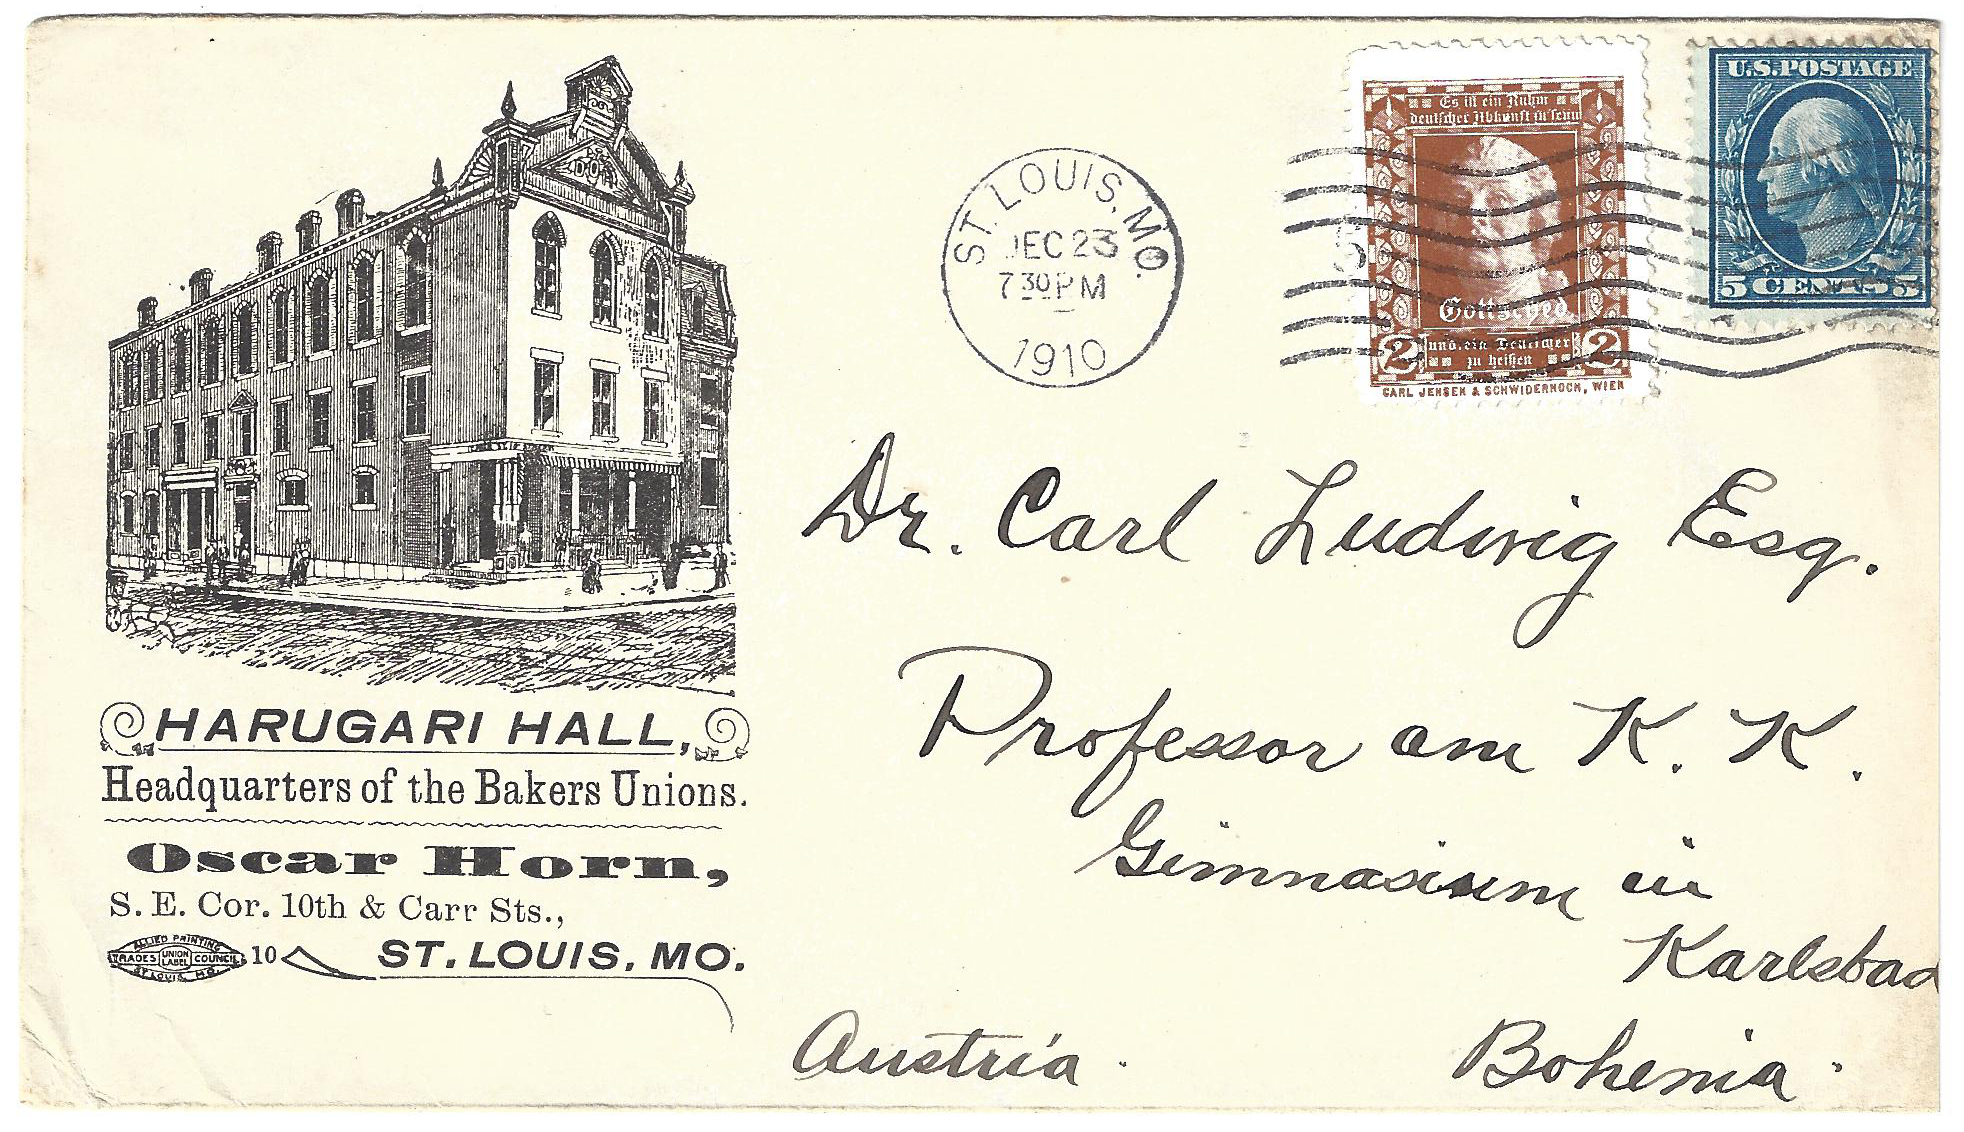 D.O.H.
HARUGARI HALL,
Headquarters of the Bakers Unions.
Oscar Horn,
S. E. Cor. 10th & Carr Sts.,
ALLIED PRINTING
TRADES UNION LABEL COUNCIL
ST. LOUIS, MO.
10
ST. LOUIS, MO.
ST. LOUIS, MO.
DEC 23
7 30 PM
1910
5
Es ist ein Ruhm
deutscher Abkunft zu sein
Gottsched
2 und ein Deutscher 2
zu heißen
CARL JENSEN & SCHWIDERNOCH, WIEN
U.S. POSTAGE
5 CENTS 5
Dr. Carl Ludwig Esq.
Professor am K. K.
Gimnasium in
Karlsbad
Austria. Bohemia.